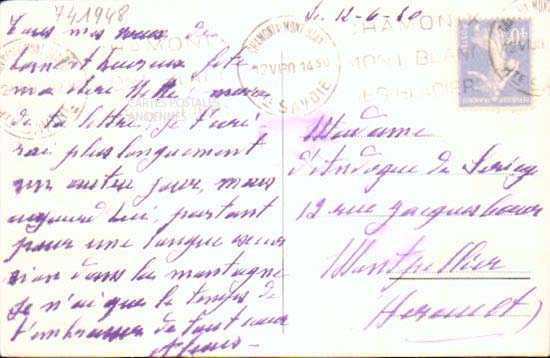 741948
Le 12-6-30
Tous mes vœux de
bonne et heureuse fête
ma chère Nelle; merci
de ta lettre, je t'écri
rai plus longuement
un autre jour, mais
aujourd'hui, partant
pour une longue excur
sion dans la montagne
je n'ai que le temps de
t'embrasser de tout cœur
CHAMONIX-MONT-BLANC
12 VI 30 14 30
SAVOIE
CHAMONIX
MONT BLANC
CARTES POSTALES
ANCIENNES
Madame
d'Andoque de
12 rue Jacques Cœur
Montpellier
(Herault)